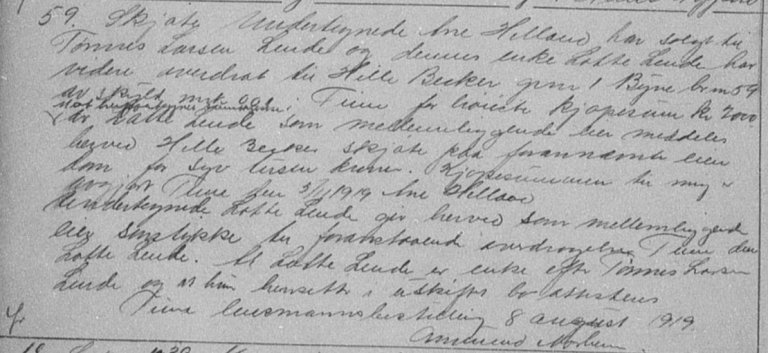 59. Skjøte Undertegnede Ane Helland har solgt til
Tønnes Larsen Lende og dennes enke Lotte Lende har
videre overdrat til Hille Becker gnr 1 Byne br no 59
av skyld mrk 0.01 i Time for kjøpesum kr 2000
Lotte Lende som mellemliggende eier meddeles
herved Hille Becker skjøte paa forannævnte eien
dom for syv tusen kroner. Kjøpesummen til mig er
Time den 3/11 1919 Ane Helland
Undertegnede Lotte Lende gir herved som mellemliggende
eier samtykke til foranstaaende overdragelse Time den
Lotte Lende. At Lotte Lende er enke efter Tønnes Larsen
Lende og at hun hensitter i uskiftet bo attesteres
Time lensmannsbestilling 8 august 1919